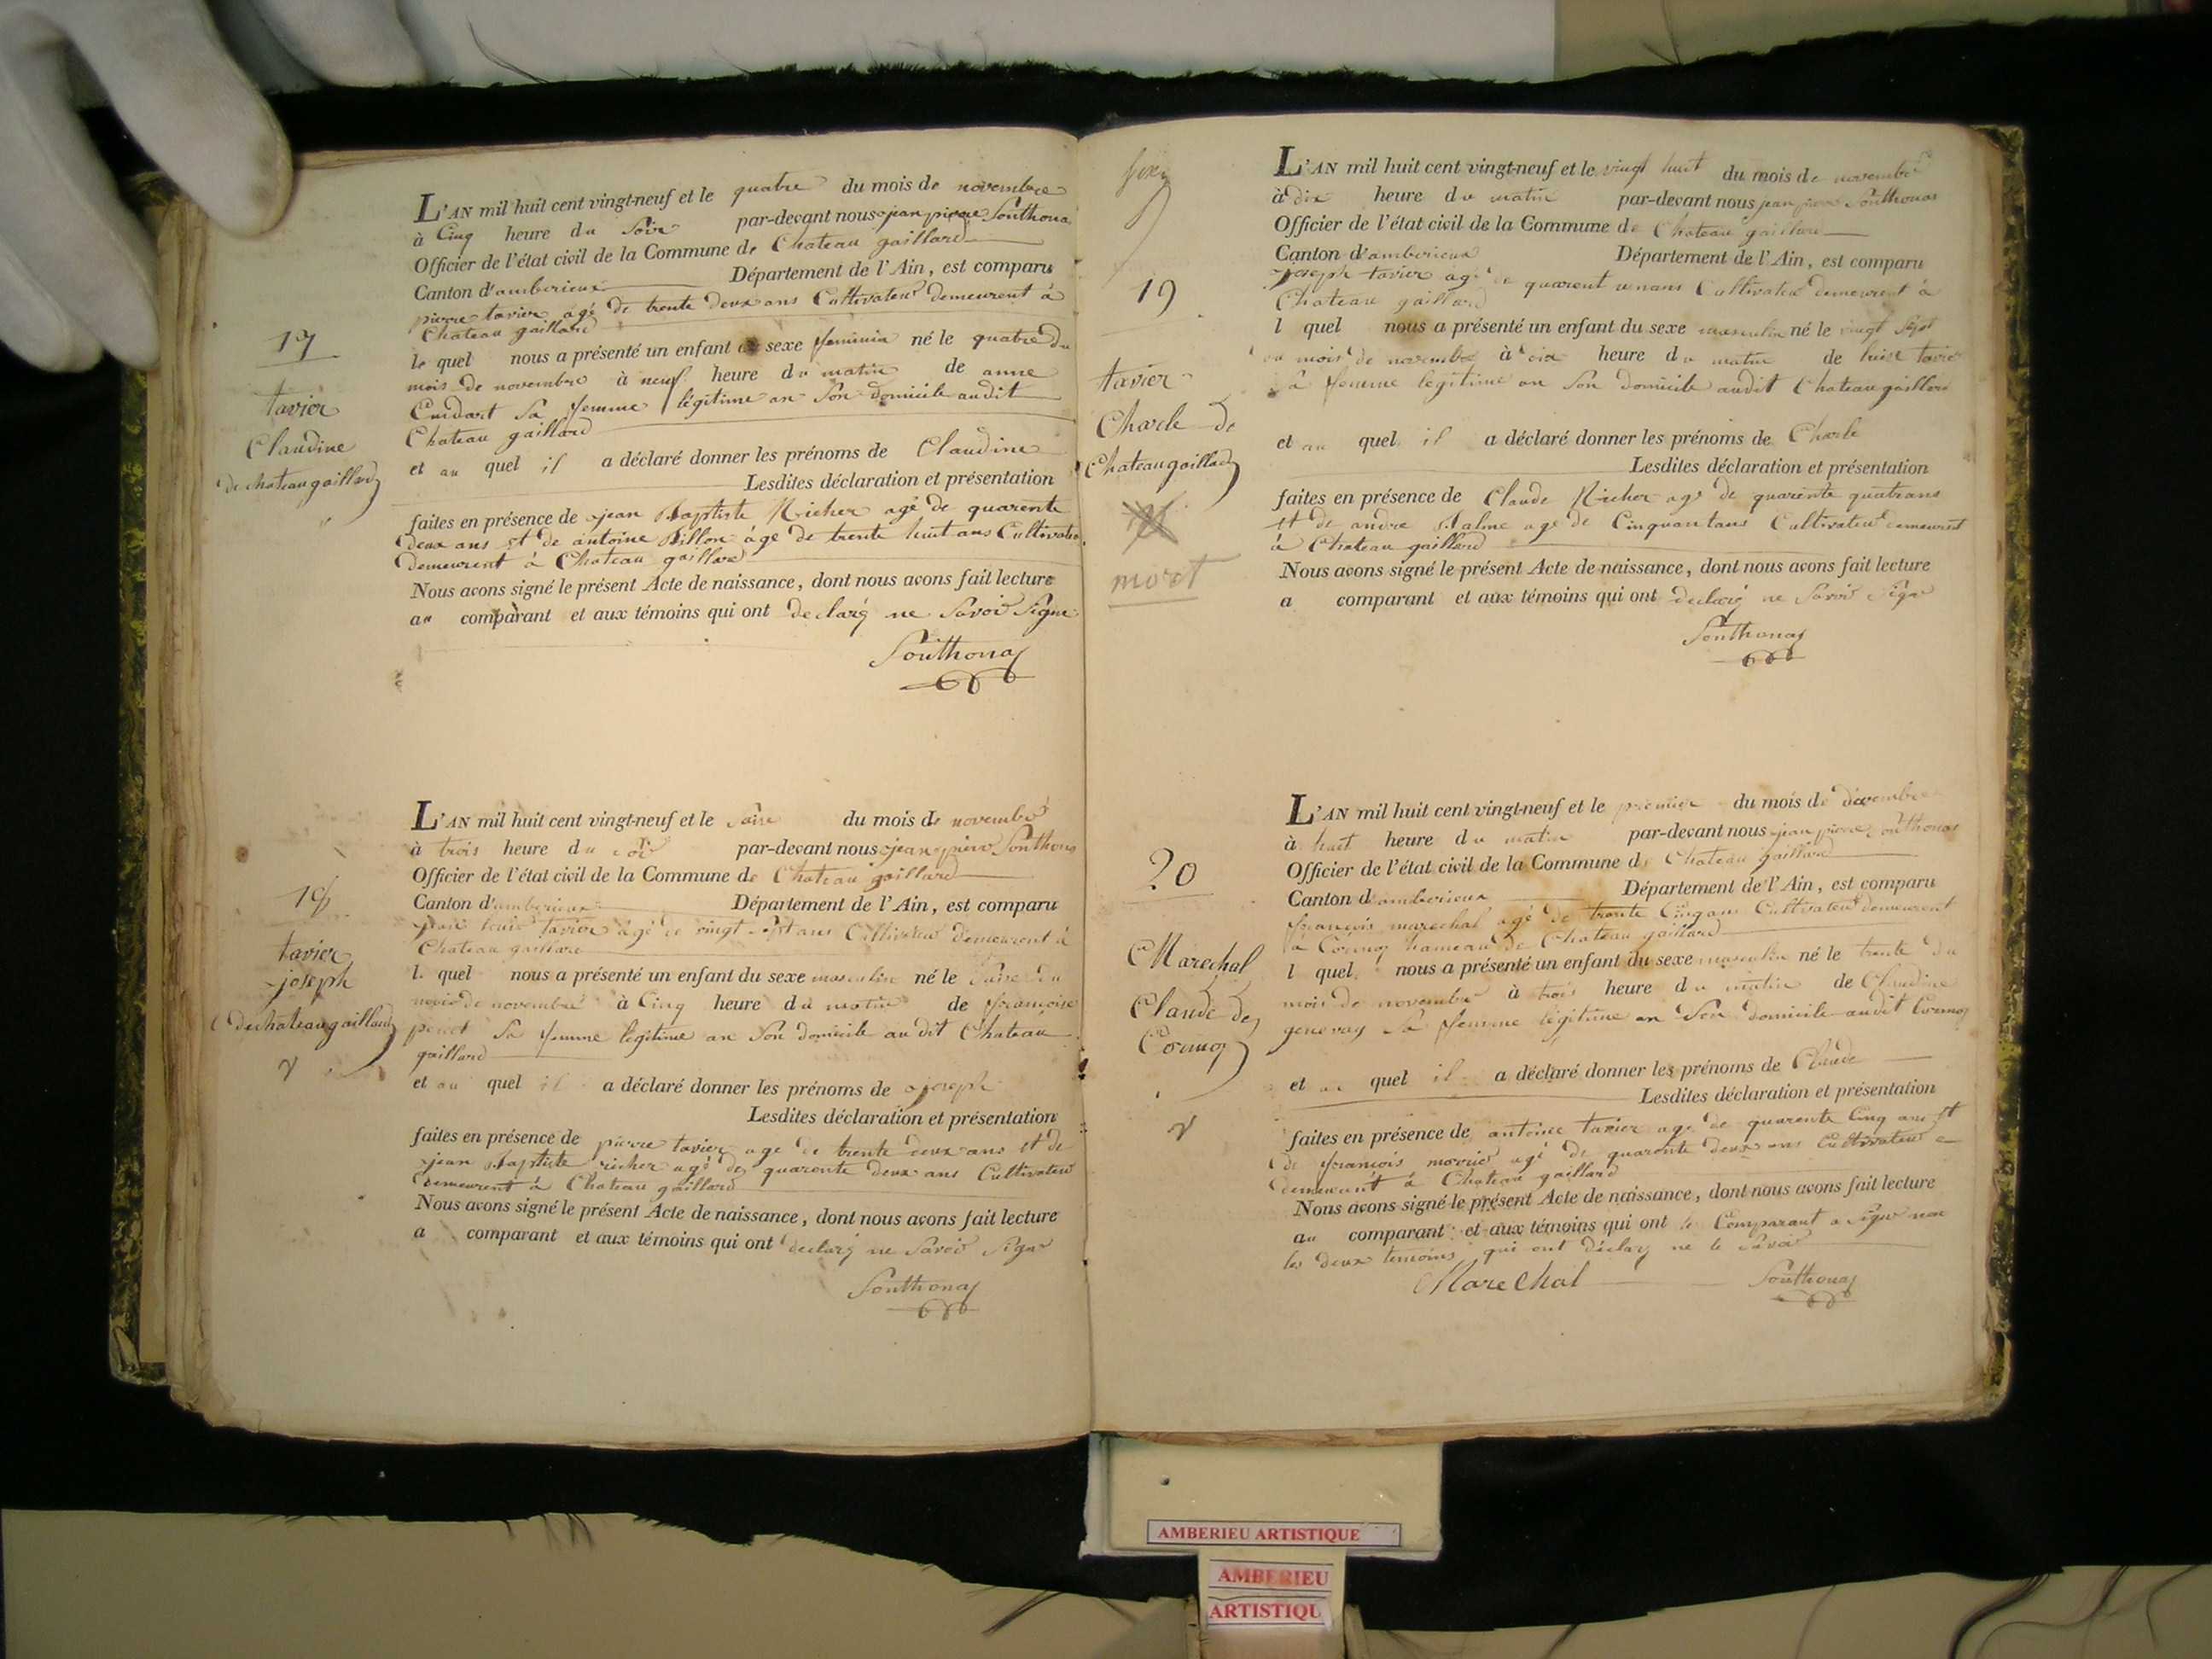 17
tavier
Claudine
de chateaugaillard
L'AN mil huit cent vingt-neuf et le quatre du mois de novembre
à Cinq heure du Soir par-devant nous jean pierre Southonas
Officier de l'état civil de la Commune de Chateau gaillard
Canton d'amberieux Département de l'Ain, est comparu
pierre tavier agé de trente deux ans Cultivateur demeurent à
Chateau gaillard
le quel nous a présenté un enfant du sexe feminin né le quatre du
mois de novembre à neuf heure du matin de anne
Cuidart Sa femme légitime an Son domicile audit
Chateau gaillard
et au quel il a déclaré donner les prénoms de Claudine
Lesdites déclaration et présentation
faites en présence de jean Baptiste Richer agé de quarente
deux ans et de antoine Billon agé de trente huit ans Cultivateur
demeurent à Chateau gaillard
Nous avons signé le présent Acte de naissance, dont nous avons fait lecture
au comparant et aux témoins qui ont declaré ne Savoir Signe
Southonas
18
tavier
joseph
de chateaugaillard
L'AN mil huit cent vingt-neuf et le du mois de novembre
à trois heure du soir par-devant nous jean pierre Southonas
Officier de l'état civil de la Commune de Chateau gaillard
Canton d'amberieux Département de l'Ain, est comparu
jean louis tavier agé de vingt sept ans Cultivateur demeurent à
Chateau gaillard
l quel nous a présenté un enfant du sexe masculin né le du
mois de novembre à Cinq heure du matin de françoise
Sa femme légitime an Son domicile au dit Chateau
gaillard
et au quel il a déclaré donner les prénoms de joseph
Lesdites déclaration et présentation
faites en présence de pierre tavier age de trente deux ans et de
jean Baptiste richer agé de quarente deux ans Cultivateur
demeurent à Chateau gaillard
Nous avons signé le présent Acte de naissance, dont nous avons fait lecture
a comparant et aux témoins qui ont declaré ne Savoir Signe
Southonas
19
tavier
Charle de
Chateaugaillard
mort
L'AN mil huit cent vingt-neuf et le vingt huit du mois de novembre
à dix heure du matin par-devant nous jean pierre Southonas
Officier de l'état civil de la Commune de Chateau gaillard
Canton d'amberieux Département de l'Ain, est comparu
joseph tavier agé de quarent unans Cultivateur demeurent à
Chateau gaillard
l quel nous a présenté un enfant du sexe masculin né le vingt sept
du mois de novembre à dix heure du matin de luise tavier
sa femme legitime an Son domicile audit Chateau gaillard
et au quel il a déclaré donner les prénoms de Charle
Lesdites déclaration et présentation
faites en présence de Claude Richer agé de quarente quatrans
et de andre Balme age de Cinquantans Cultivateur demeurent
à Chateau gaillard
Nous avons signé le présent Acte de naissance, dont nous avons fait lecture
a comparant et aux témoins qui ont declaré ne Savoir Signe
Southonas
20
Marechal
Claude de
Cormoz
L'AN mil huit cent vingt-neuf et le premier du mois de décembre
à huit heure du matin par-devant nous jean pierre Southonas
Officier de l'état civil de la Commune de Chateau gaillard
Canton d'amberieux Département de l'Ain, est comparu
françois marechal agé de trente Cinq ans Cultivateur demeurent
à Cormoz hameau de Chateau gaillard
l quel nous a présenté un enfant du sexe masculin né le trente du
mois de novembre à trois heure du matin de Claudine
genevay Sa femme légitime an Son domicile audit Cormoz
et au quel il a déclaré donner les prénoms de Claude
Lesdites déclaration et présentation
faites en présence de antoine tavier age de quarente Cinq ans et
de françois agé de quarente deux ans Cultivateur
demeurant à Chateau gaillard
Nous avons signé le présent Acte de naissance, dont nous avons fait lecture
au comparant et aux témoins qui ont le Comparant a Signé non
les deux temoins qui ont déclaré ne le Savoir
Marechal Southonas
AMBERIEU ARTISTIQUE
AMBERIEU
ARTISTIQU